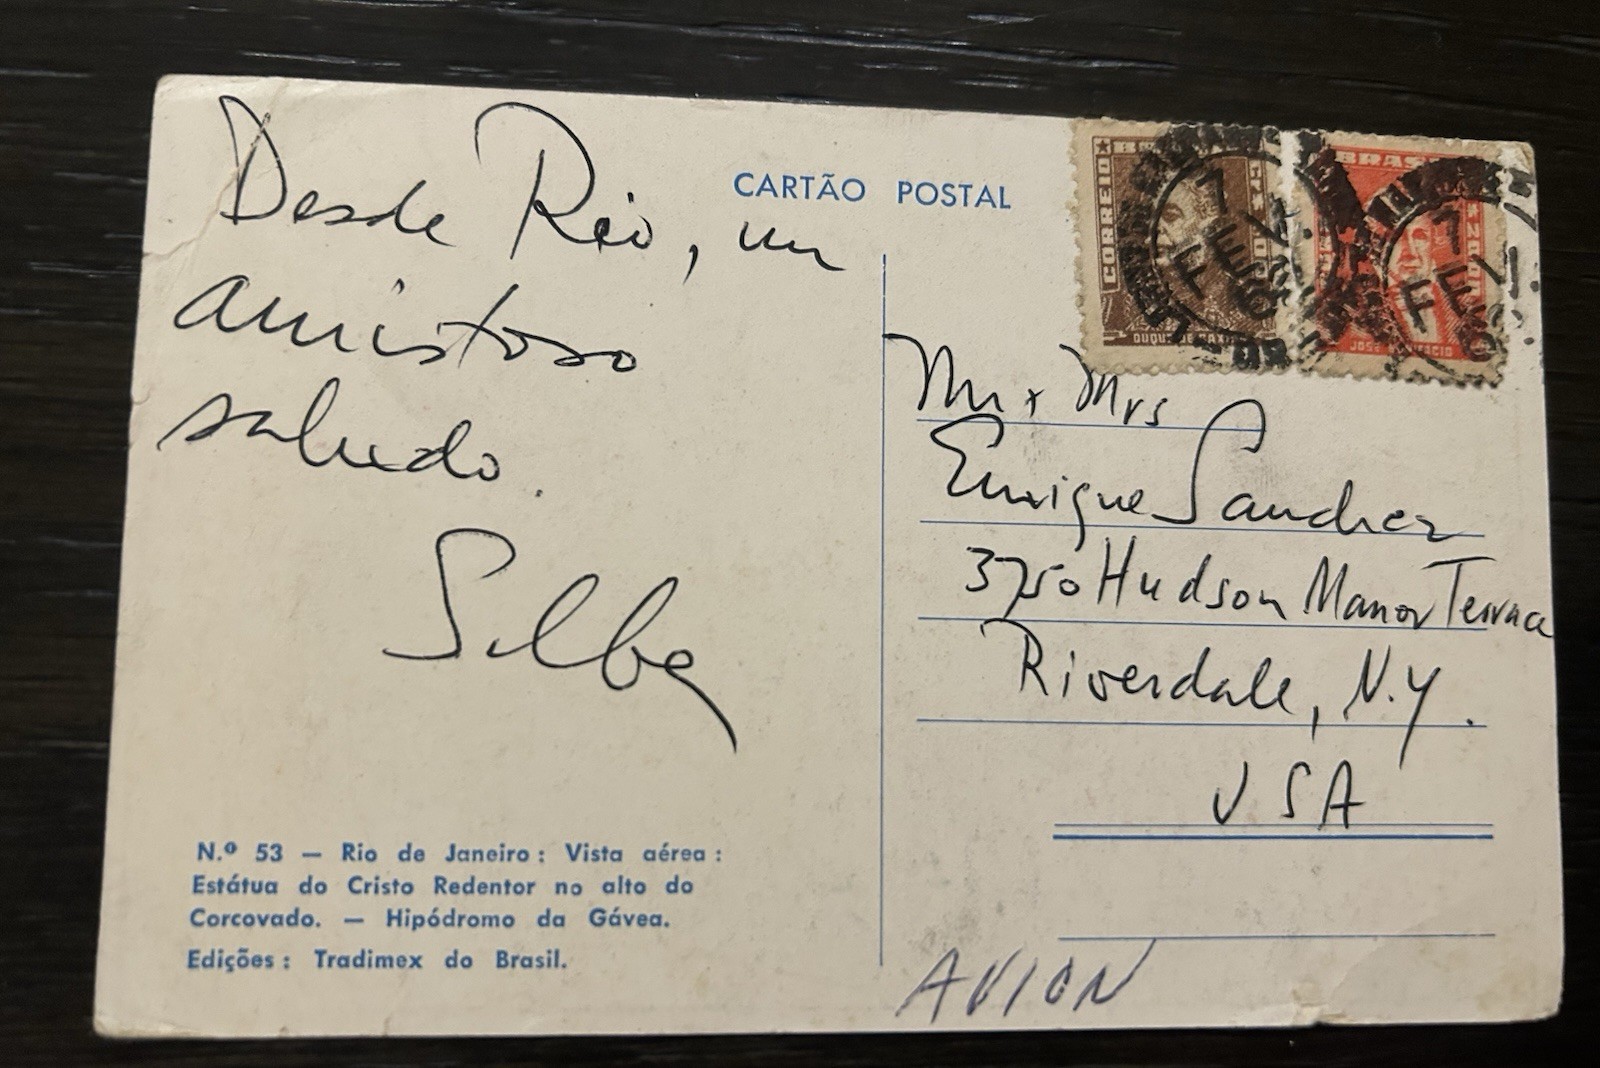 Desde Rio, un
amistoso
saludo.
Silba
CARTÃO POSTAL
CORREIO
DUQUE DE CAXIAS
7
FEV.
BRASIL
JOSÉ BONIFÁCIO
7
FEV.
Mr + Mrs
Enrique Sanchez
3750 Hudson Manor Terrace
Riverdale, N.Y.
USA
AVION
N.º 53 — Rio de Janeiro : Vista aérea :
Estátua do Cristo Redentor no alto do
Corcovado. — Hipódromo da Gávea.
Edições : Tradimex do Brasil.